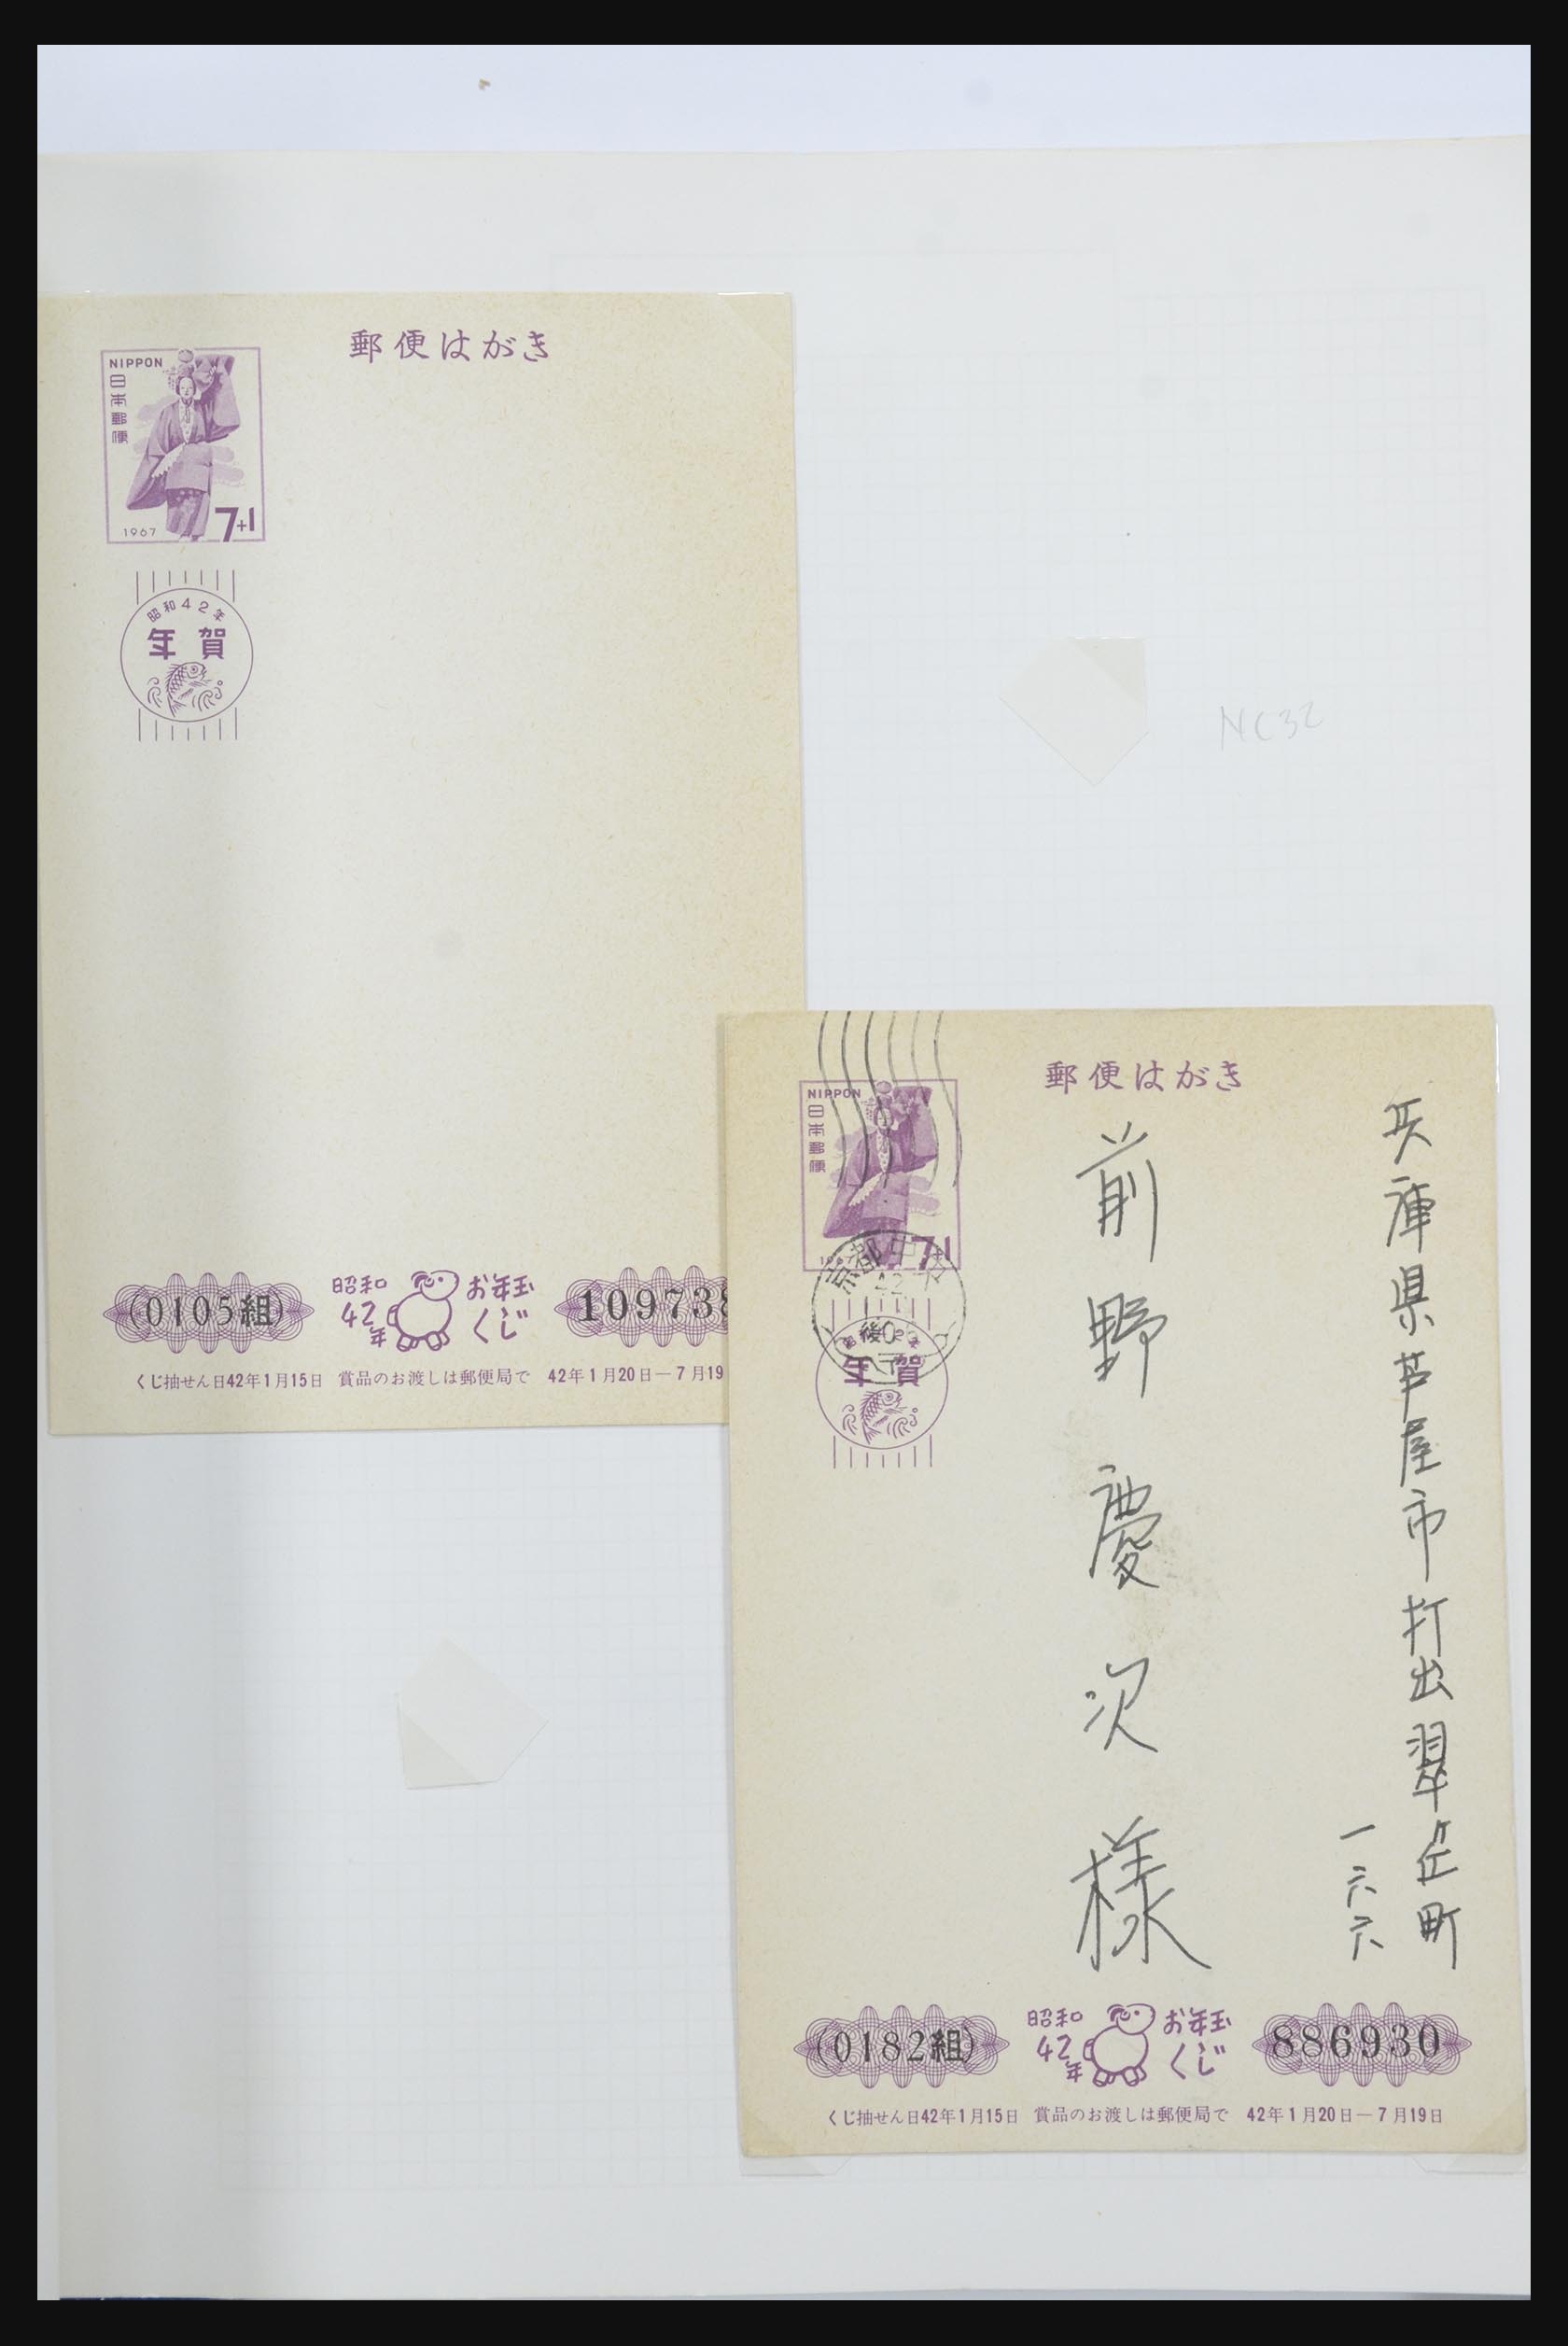 郵便はがき
NIPPON
日本郵便
1967
7+1
昭和42年
年賀
(0105組)
昭和42年
お年玉くじ
109738
くじ抽せん日42年1月15日 賞品のお渡しは郵便局で 42年1月20日—7月19
NC32
郵便はがき
NIPPON
日本郵便
7+1
京都中
後0
年賀
兵庫県芦屋市打出翠ヶ丘町
一六六
前野慶次様
(0182組)
昭和42年
お年玉くじ
886930
くじ抽せん日42年1月15日 賞品のお渡しは郵便局で 42年1月20日—7月19日